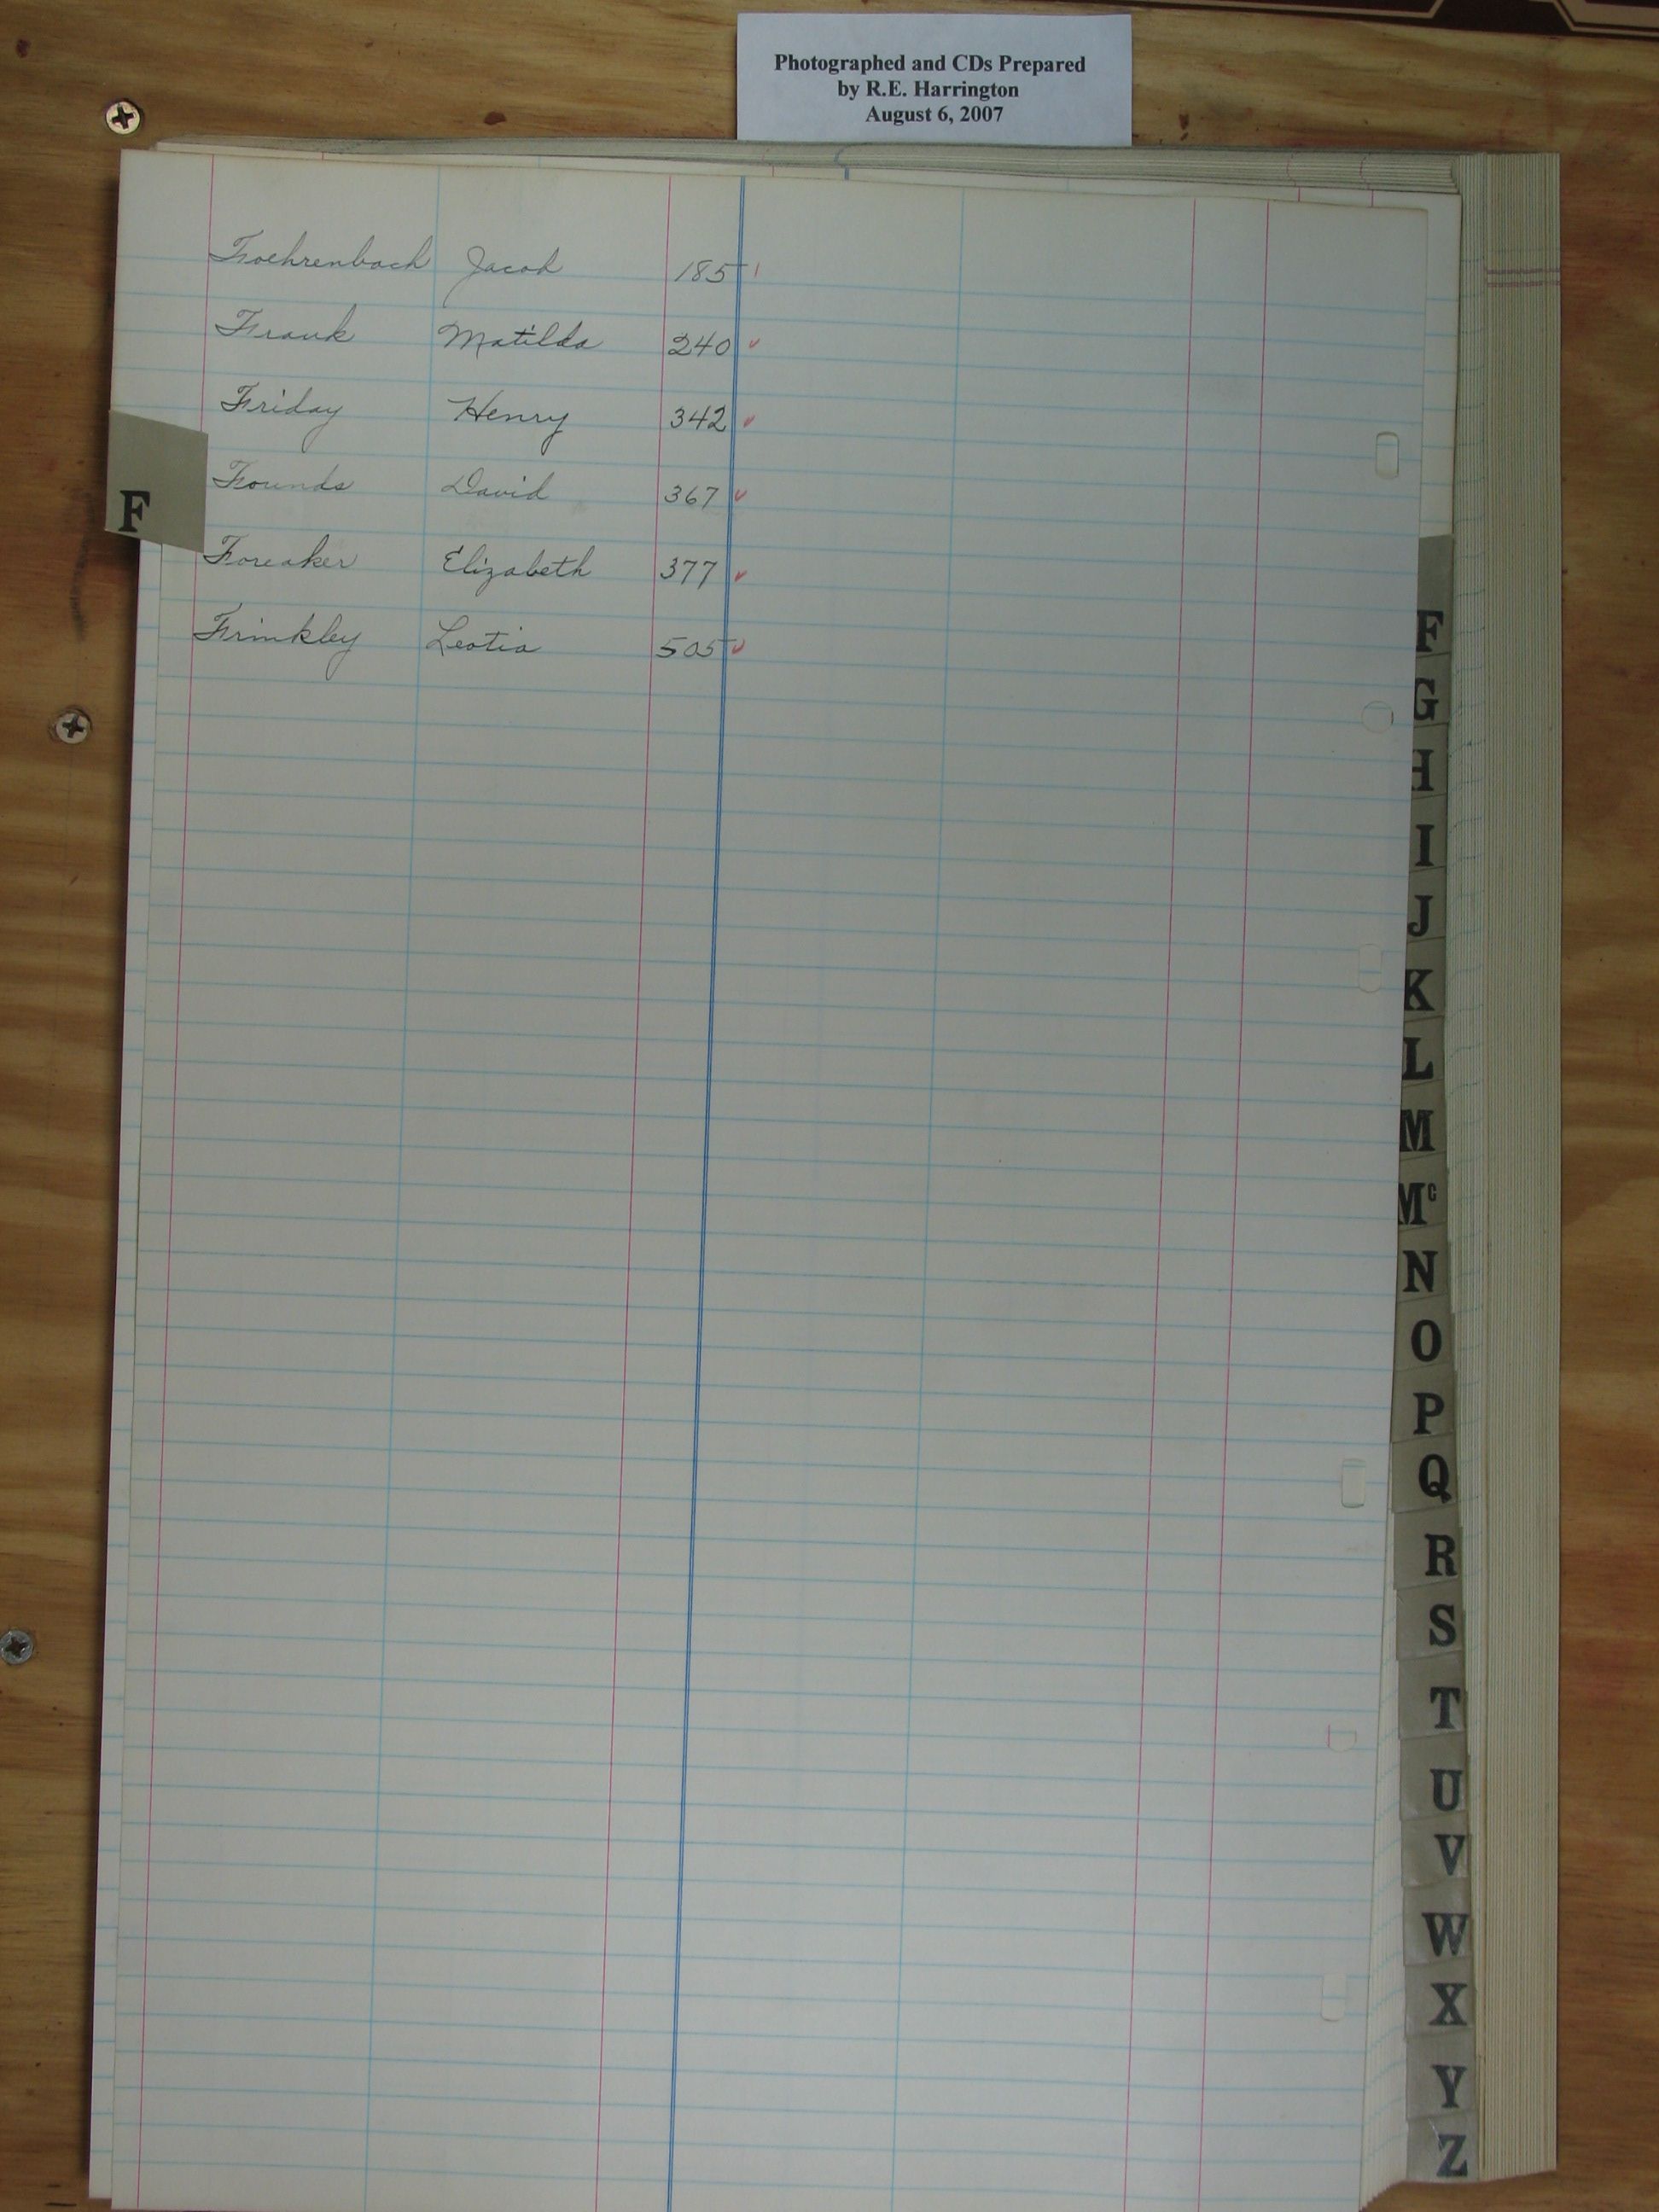 Photographed and CDs Prepared
by R.E. Harrington
August 6, 2007
Foehrenbach Jacob 185
Frank Matilda 240
Friday Henry 342
Founds David 367
F
Foreaker Elizabeth 377
Frinkley Leotia 505
F
G
H
I
J
K
L
M
Mc
N
O
P
Q
R
S
T
U
V
W
X
Y
Z